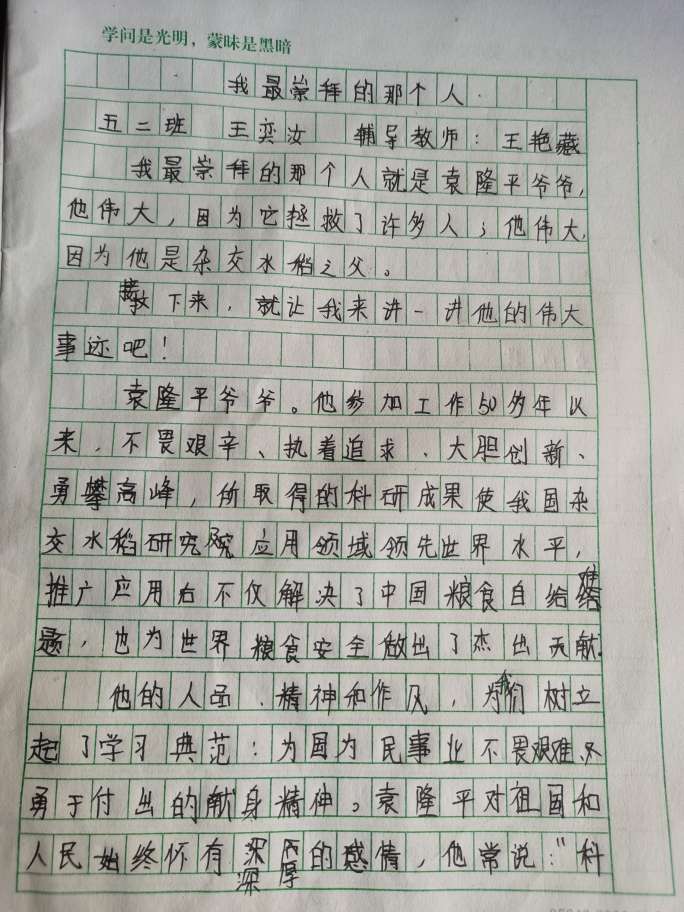 学问是光明，蒙昧是黑暗
我最崇拜的那个人
五二班 王奕汝 辅导教师：王艳藏
我最崇拜的那个人就是袁隆平爷爷，
他伟大，因为它拯救了许多人；他伟大，
因为他是杂交水稻之父。
接下来，就让我来讲一讲他的伟大
事迹吧！
袁隆平爷爷。他参加工作50多年以
来，不畏艰辛、执着追求、大胆创新、
勇攀高峰，所取得的科研成果使我国杂
交水稻研究及应用领域领先世界水平，
推广应用后不仅解决了中国粮食自给难
题，也为世界粮食安全做出了杰出贡献。
他的人品、精神和作风，为我们树立
起了学习典范：为国为民事业不畏艰难、
勇于付出的献身精神。袁隆平对祖国和
人民始终怀有深厚的感情，他常说："科